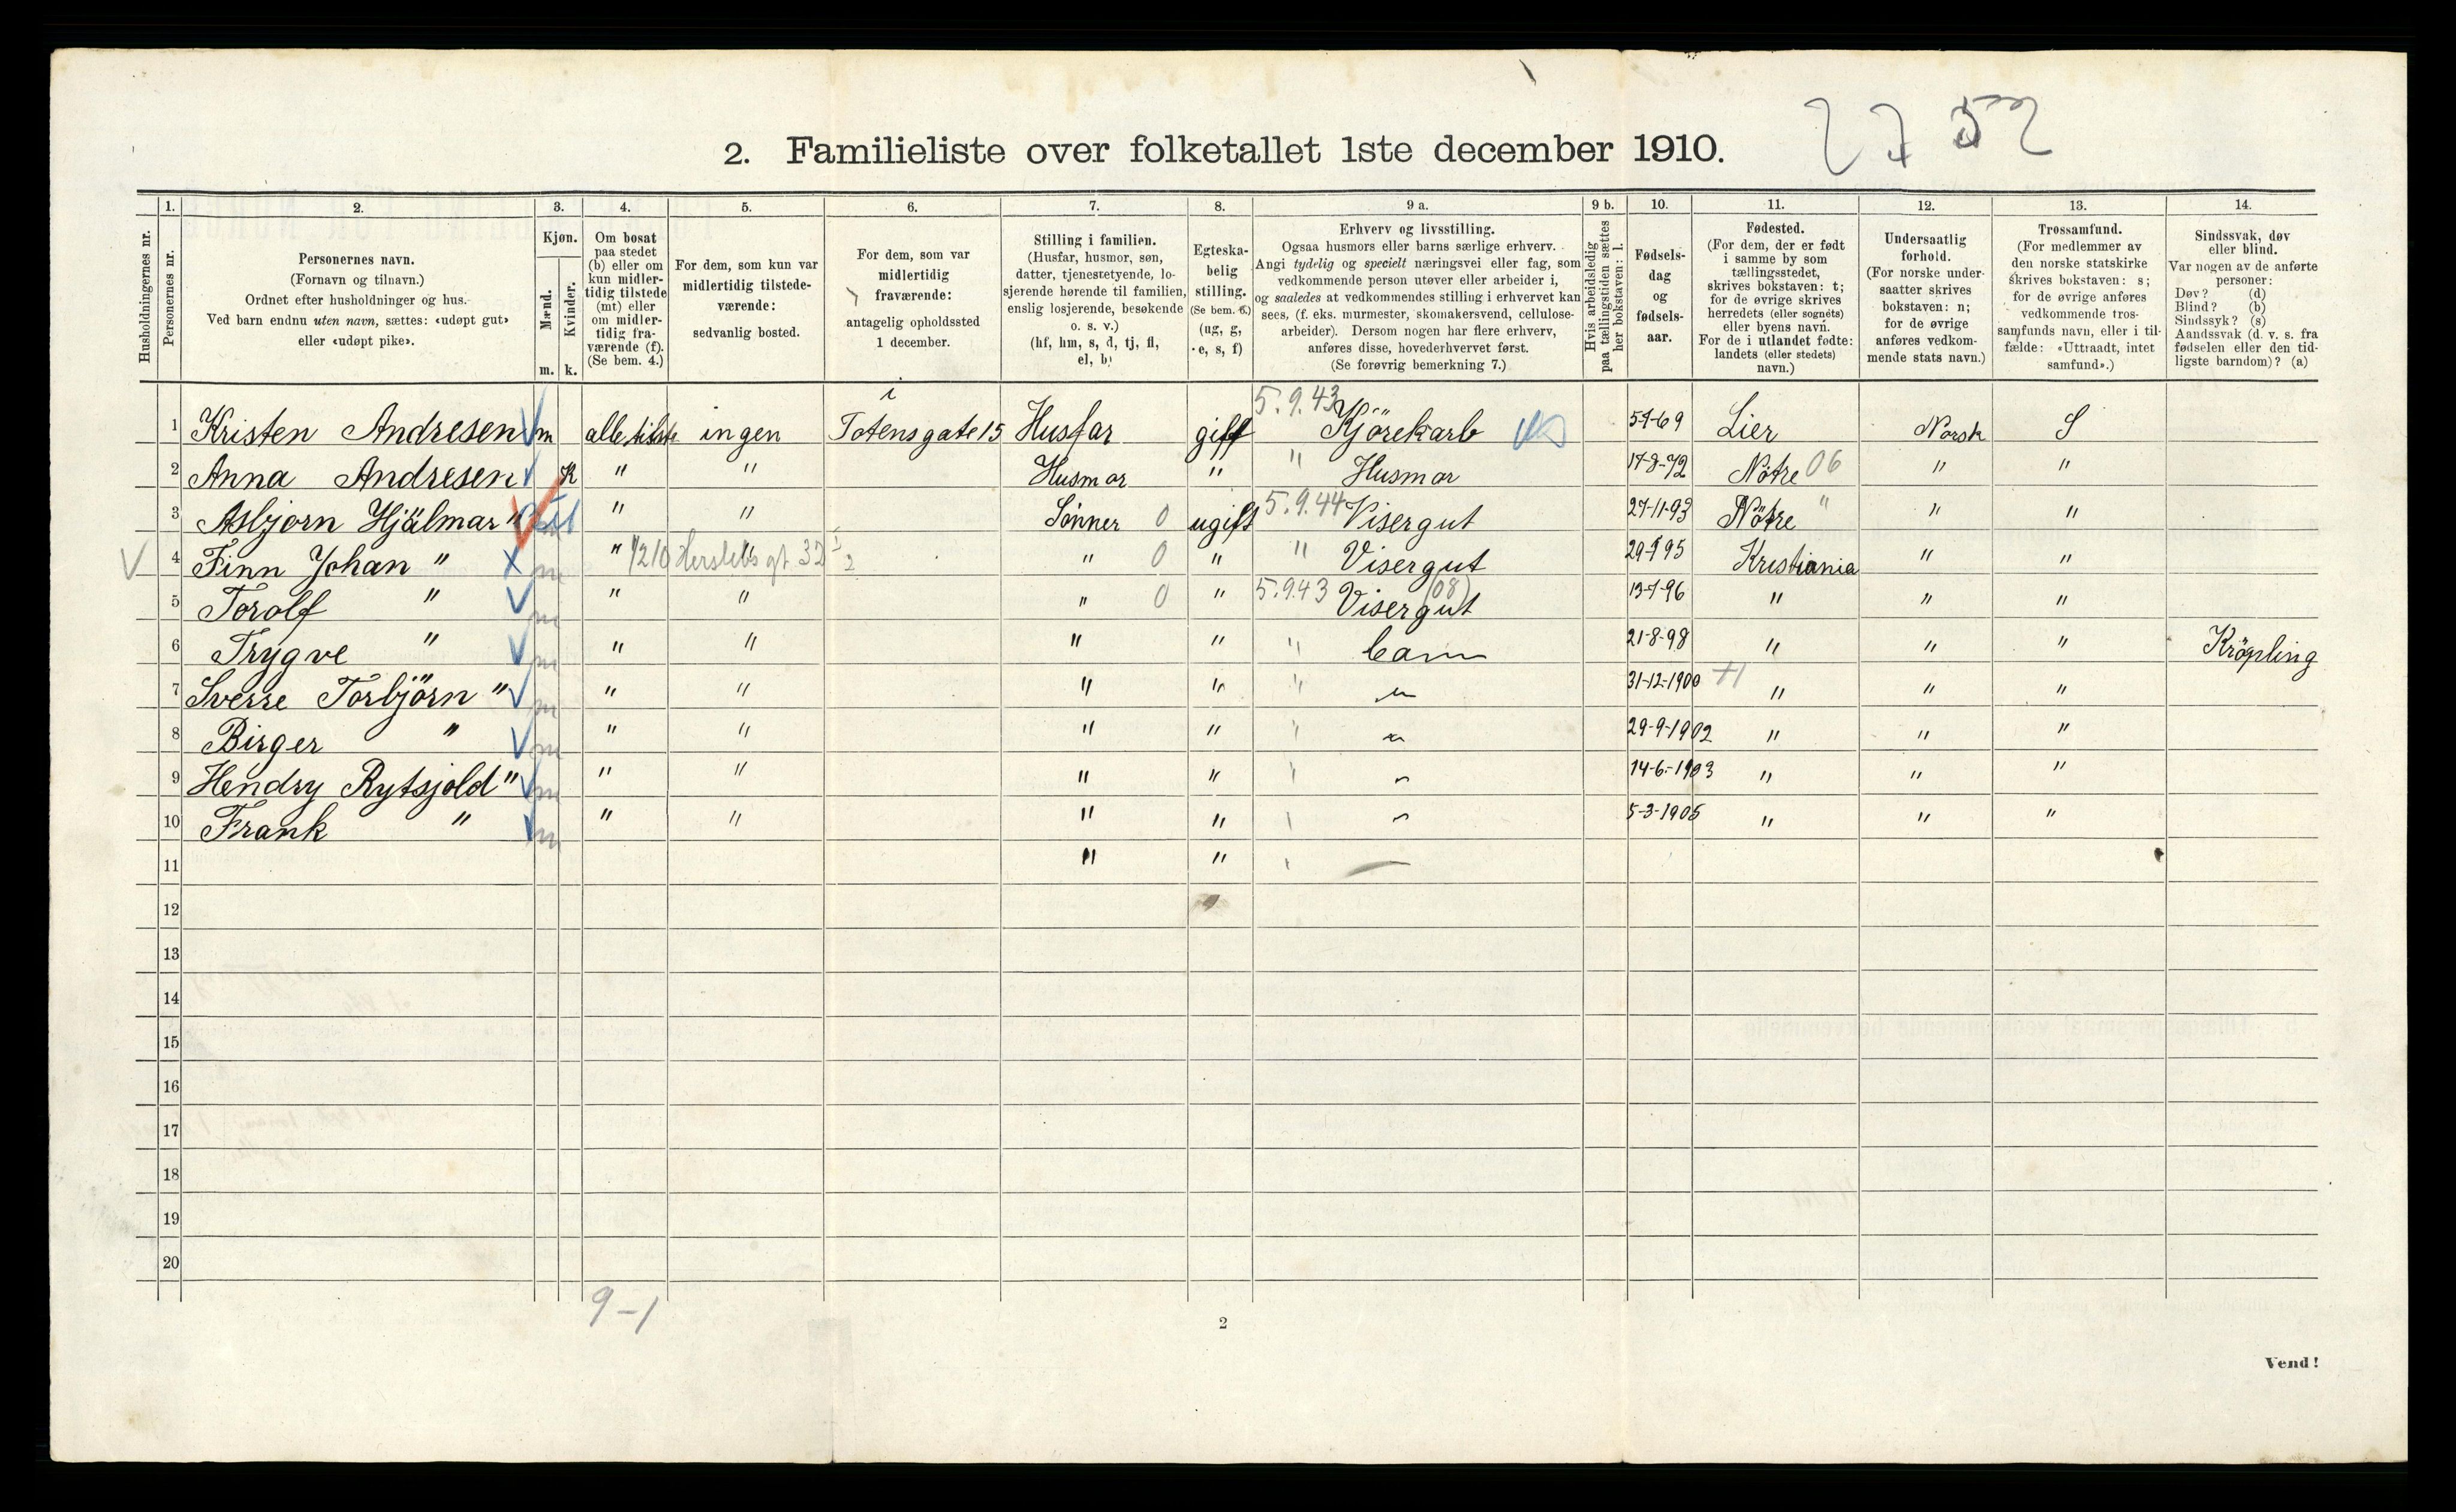 2. Familieliste over folketallet 1ste december 1910.
2752
Husholdningernes nr.
1. Personernes nr.
2. Personernes navn. (Fornavn og tilnavn.) Ordnet efter husholdninger og hus. Ved barn endnu uten navn, sættes: «udøpt gut» eller «udøpt pike».
3. Kjøn. Mænd. m. Kvinder. k.
4. Om bosat paa stedet (b) eller om kun midlertidig tilstede (mt) eller om midlertidig fraværende (f). (Se bem. 4.)
5. For dem, som kun var midlertidig tilstedeværende: sedvanlig bosted.
6. For dem, som var midlertidig fraværende: antagelig opholdssted 1 december.
7. Stilling i familien. (Husfar, husmor, søn, datter, tjenestetyende, losjerende hørende til familien, enslig losjerende, besøkende o. s. v.) (hf, hm, s, d, tj, fl, el, b)
8. Egteskabelig stilling. (Se bem. 6.) (ug, g, e, s, f)
9 a. Erhverv og livsstilling. Ogsaa husmors eller barns særlige erhverv. Angi tydelig og specielt næringsvei eller fag, som vedkommende person utøver eller arbeider i, og saaledes at vedkommendes stilling i erhvervet kan sees, (f. eks. murmester, skomakersvend, cellulosearbeider). Dersom nogen har flere erhverv, anføres disse, hovederhvervet først. (Se forøvrig bemerkning 7.)
9 b. Hvis arbeidsledig paa tællingstiden sættes her bokstaven: l.
10. Fødselsdag og fødselsaar.
11. Fødested. (For dem, der er født i samme by som tællingsstedet, skrives bokstaven: t; for de øvrige skrives herredets (eller sognets) eller byens navn. For de i utlandet fødte: landets (eller stedets) navn.)
12. Undersaatlig forhold. (For norske undersaatter skrives bokstaven: n; for de øvrige anføres vedkommende stats navn.)
13. Trossamfund. (For medlemmer av den norske statskirke skrives bokstaven: s; for de øvrige anføres vedkommende trossamfunds navn, eller i tilfælde: «Uttraadt, intet samfund».)
14. Sindssvak, døv eller blind. Var nogen av de anførte personer: Døv? (d) Blind? (b) Sindssyk? (s) Aandssvak (d. v. s. fra fødselen eller den tidligste barndom)? (a)
1 Kristen Andresen m alle tilste ingen i Totensgate 15 Husfar gift 5.9.43 Kjörekarb 5-1-69 Lier Norsk S
2 Anna Andresen K " " Husmor " " Husmor 17-8-72 Nötre 06 " "
3 Asbjorn Hjälmar " " " Sönner 0 ugift 5.9.44 Visergut 27-11-93 Nötre " " "
4 Finn Johan " m " 1/210 Herslebs gt 32 I 2 " 0 " " Visergut 29-7 95 Kristiania " "
5 Torolf " m " " " 0 " 5.9.43 Visergut (08) 13-7-96 " " "
6 Trygve " m " " " " " barn 21-8-98 " " " Kröpling
7 Sverre Torbjörn " m " " " " " " 31-12-1900 " " "
8 Birger " m " " " " " " 29-9-1902 " " "
9 Hendry Rytsjold " m " " " " " " 14-6-1903 " " "
10 Frank " m " " " " " " 5-3-1905 " " "
11 " " "
12
13
14
15
16
17
18
19
20
9-1
2
Vend!